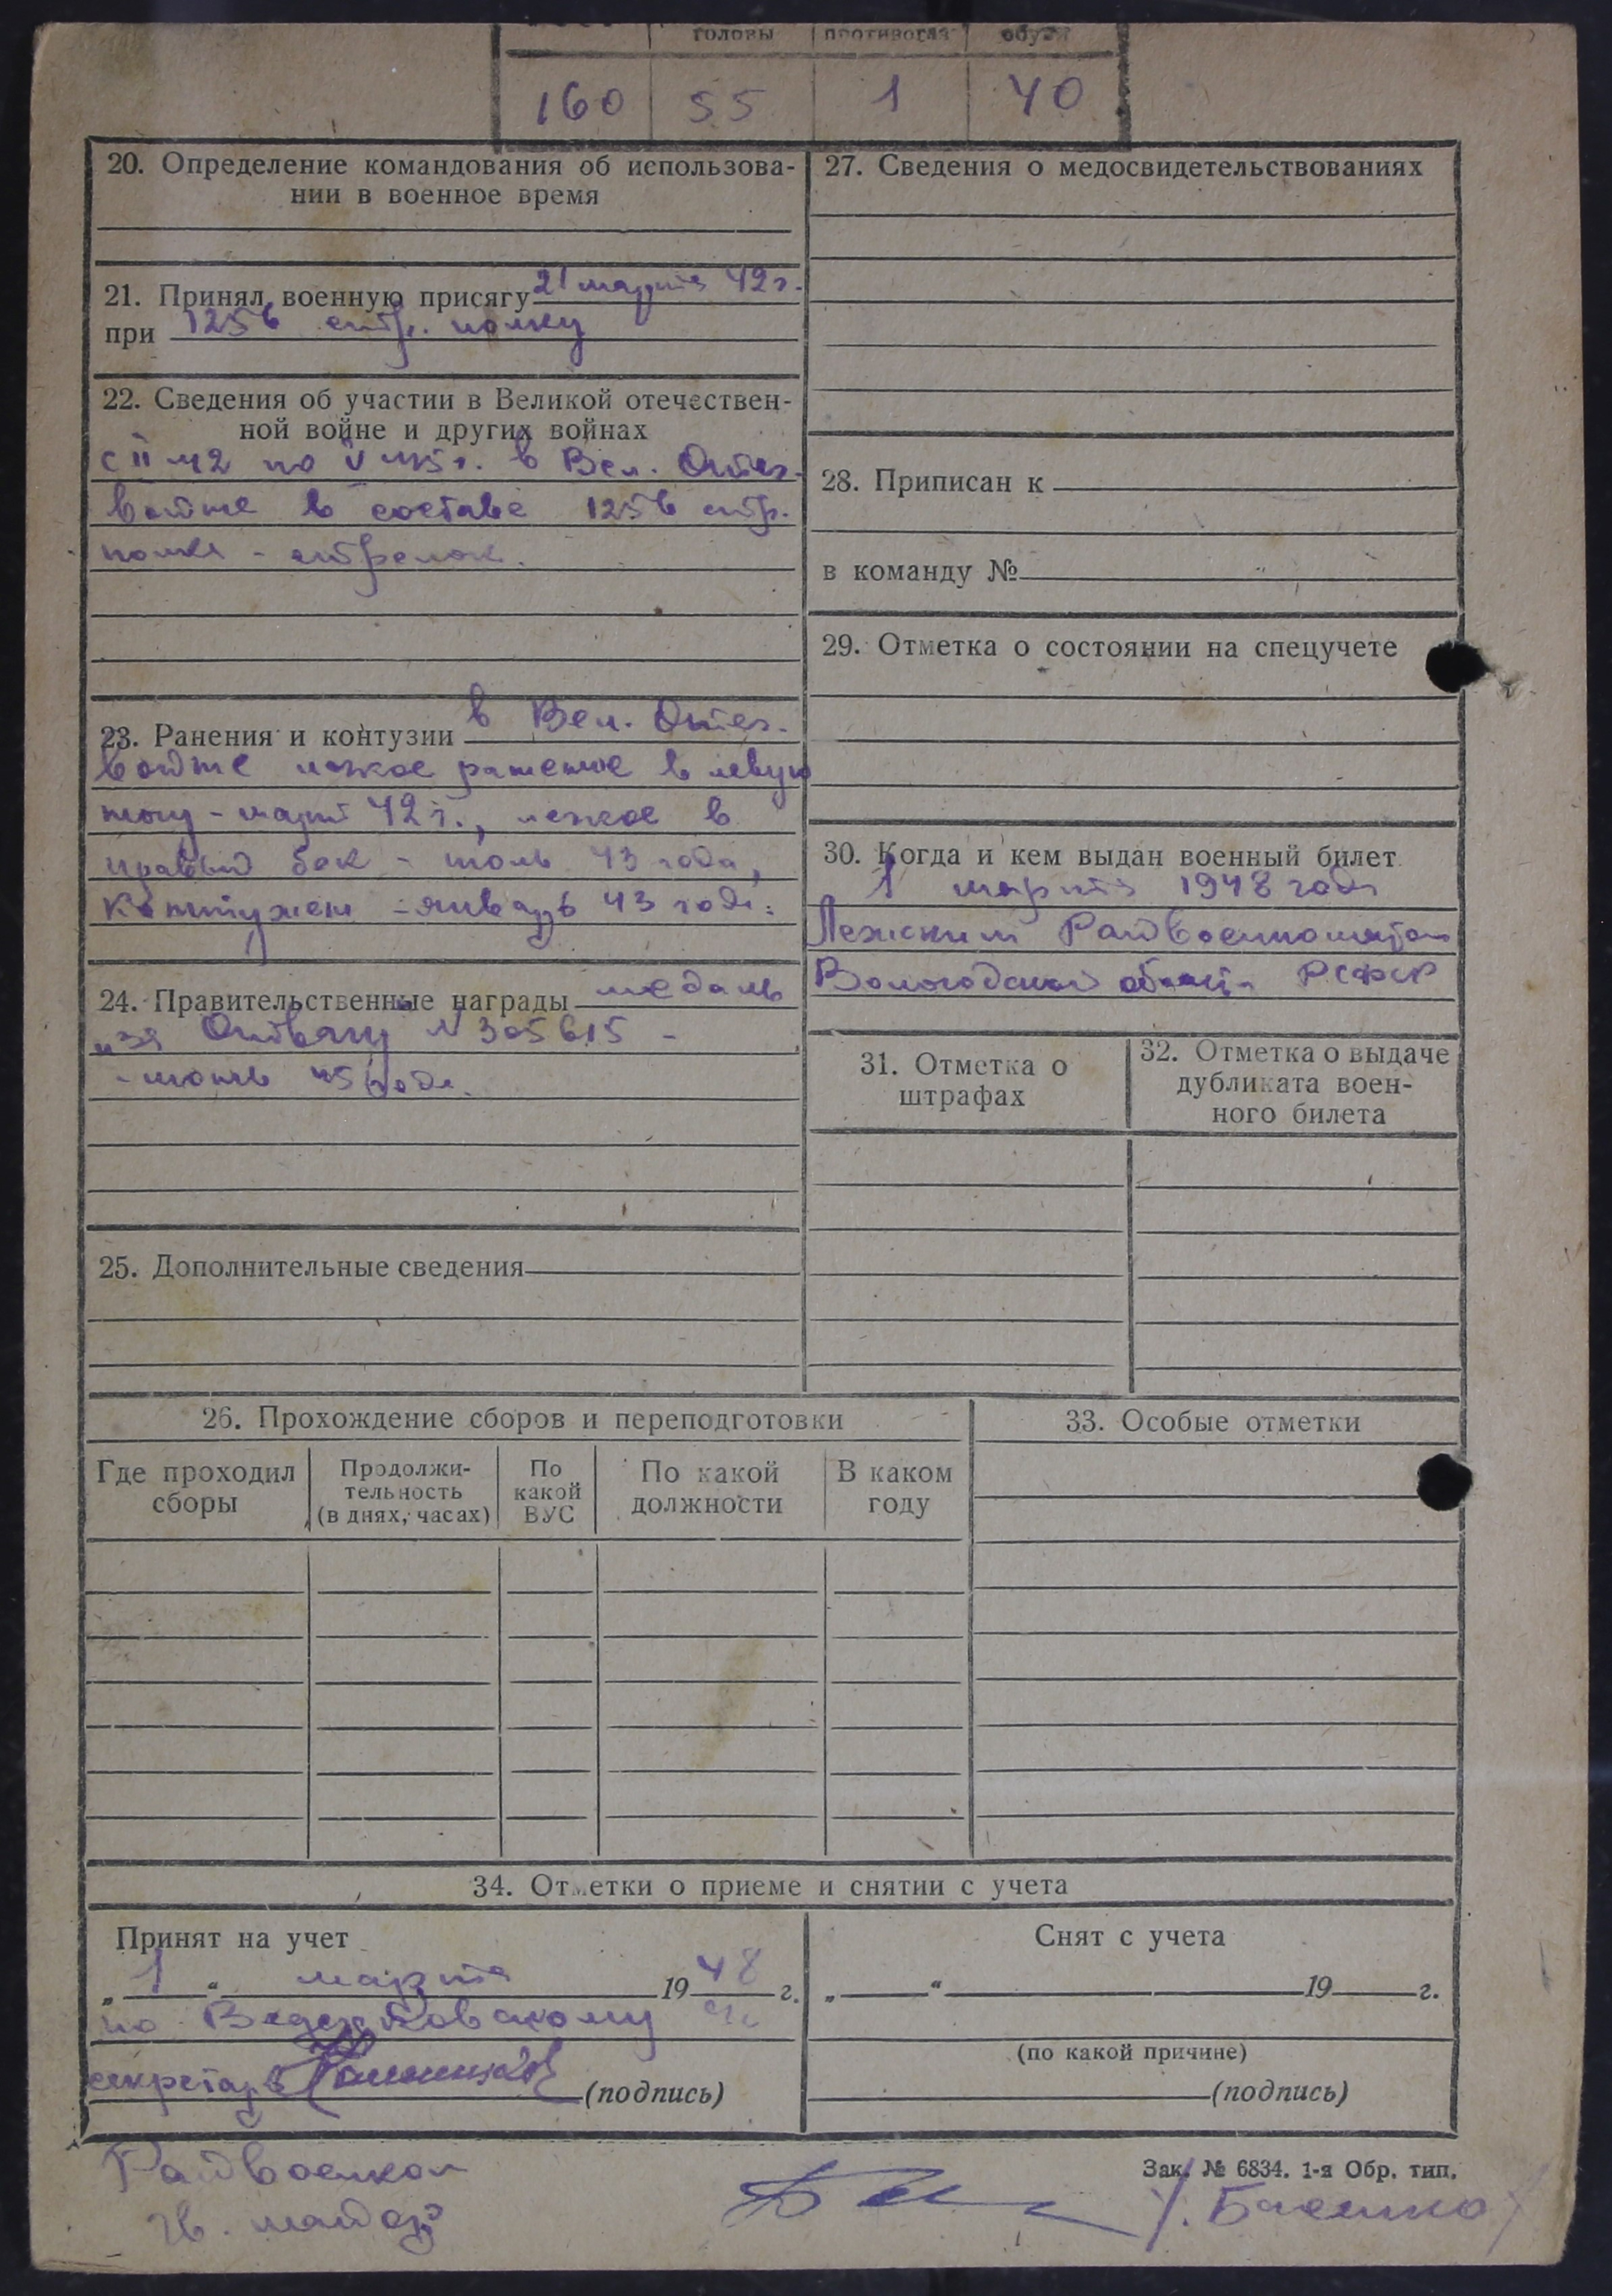 головы противогаз обуви
160 55 1 40
20. Определение командования об использова-
нии в военное время
21. Принял военную присягу 21 марта 42 г.
при 1256 стр. полку
22. Сведения об участии в Великой отечествен-
ной войне и других войнах
с II 42 по V 45 г. в Вел. Отеч.
войне в составе 1256 стр.
полка - стрелок.
23. Ранения и контузии в Вел. Отеч.
войне легкое ранение в левую
ногу - март 42 г., легкое в
правый бок - июль 43 года,
контужен - январь 43 года.
24. Правительственные награды медаль
"За Отвагу N 305615 -
- июнь 45 года.
25. Дополнительные сведения
27. Сведения о медосвидетельствованиях
28. Приписан к
в команду №
29. Отметка о состоянии на спецучете
30. Когда и кем выдан военный билет
1 марта 1948 года
Лежским Райвоенкоматом
Вологодской области РСФСР
31. Отметка о
штрафах
32. Отметка о выдаче
дубликата воен-
ного билета
26. Прохождение сборов и переподготовки
Где проходил
сборы
Продолжи-
тельность
(в днях, часах)
По
какой
ВУС
По какой
должности
В каком
году
33. Особые отметки
34. Отметки о приеме и снятии с учета
Принят на учет
„ 1 “ марта 1948 г.
по
секретарь (подпись)
Снят с учета
„ “ 19 г.
(по какой причине)
(подпись)
Зак. № 6834. 1-я Обр. тип.
Райвоенком
гв. майор